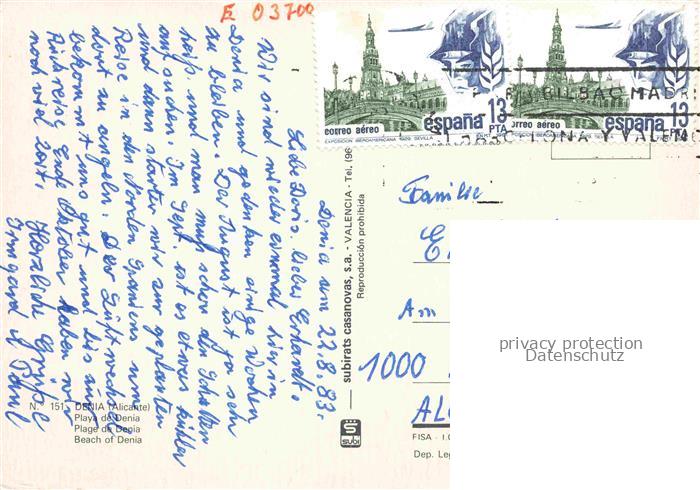 E 03700
correo aéreo
españa 13 PTA
EXPOSICION IBEROAMERICANA 1929. SEVILLA
correo aéreo
españa 13 PTA
EXPOSICION IBEROAMERICANA 1929. SEVILLA
BILBAO MADRI
LONA Y VALENC
Denia am 22.8.83.
Liebe Doris, lieber Erhardt,
Wir sind wieder einmal hier in
Denia und gedenken einige Wochen
zu bleiben. Der August ist ja sehr
heiß und man muß schon den Schatten
aufsuchen. Im Sept. ist es etwas kühler
und dann starten wir zur geplanten
Reise in den Norden Spaniens um
dort zu angeln. Der Luftwechsel
bekommt uns gut und bis zur
Rückreise Ende Oktober haben wir
noch viel Zeit.
Herzliche Grüße
Irmgard u. Paul
subirats casanovas, s.a. - VALENCIA - Tel. (96
Reproducción prohibida
subi
Familie
Am
1000
N.° 151. DENIA (Alicante)
Playa de Denia
Plage de Denia
Beach of Denia
FISA - I.
Dep. Leg
privacy protection
Datenschutz